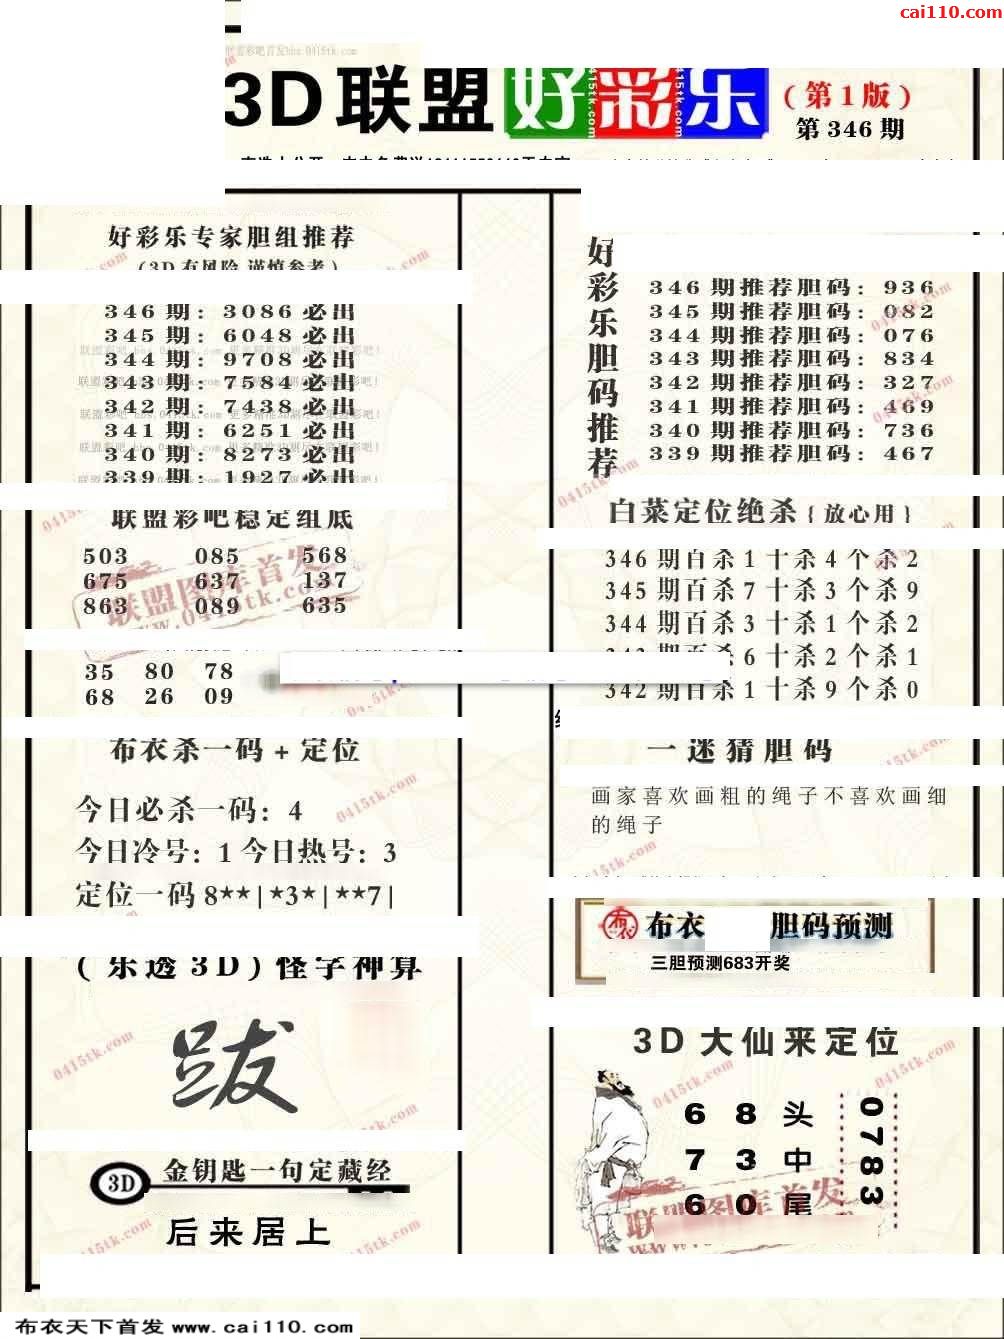 cai110.com
3D联盟 好彩乐 (第1版)
第346期
好彩乐专家胆组推荐
(3D有风险 谨慎参考)
346期: 3086必出
345期: 6048必出
344期: 9708必出
343期: 7584必出
342期: 7438必出
341期: 6251必出
340期: 8273必出
339期: 1927必出
联盟彩吧稳定组底
503 085 568
675 637 137
863 089 635
35 80 78
68 26 09
布衣杀一码+定位
今日必杀一码: 4
今日冷号: 1 今日热号: 3
定位一码 8**|*3*|**7|
(乐透3D)怪字神算
跋
3D 金钥匙一句定藏经
后来居上
好彩乐胆码推荐
346期推荐胆码: 936
345期推荐胆码: 082
344期推荐胆码: 076
343期推荐胆码: 834
342期推荐胆码: 327
341期推荐胆码: 469
340期推荐胆码: 736
339期推荐胆码: 467
白菜定位绝杀{放心用}
346期百杀1十杀4个杀2
345期百杀7十杀3个杀9
344期百杀3十杀1个杀2
6十杀2个杀1
342期百杀1十杀9个杀0
一迷猜胆码
画家喜欢画粗的绳子不喜欢画细
的绳子
布衣 布衣 胆码预测
三胆预测683开奖
3D大仙来定位
6 8 头
7 3 中
6 0 尾
0783
联盟图库首发
布衣天下首发 www.cai110.com